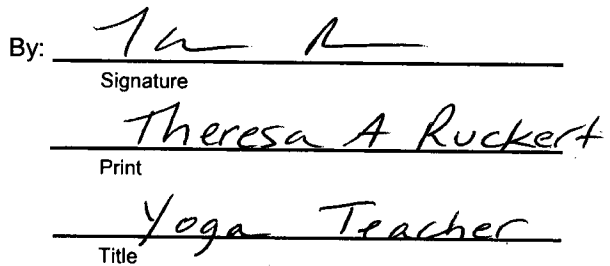 By:
Signature
Theresa A Ruckert
Print
Yoga Teacher
Title